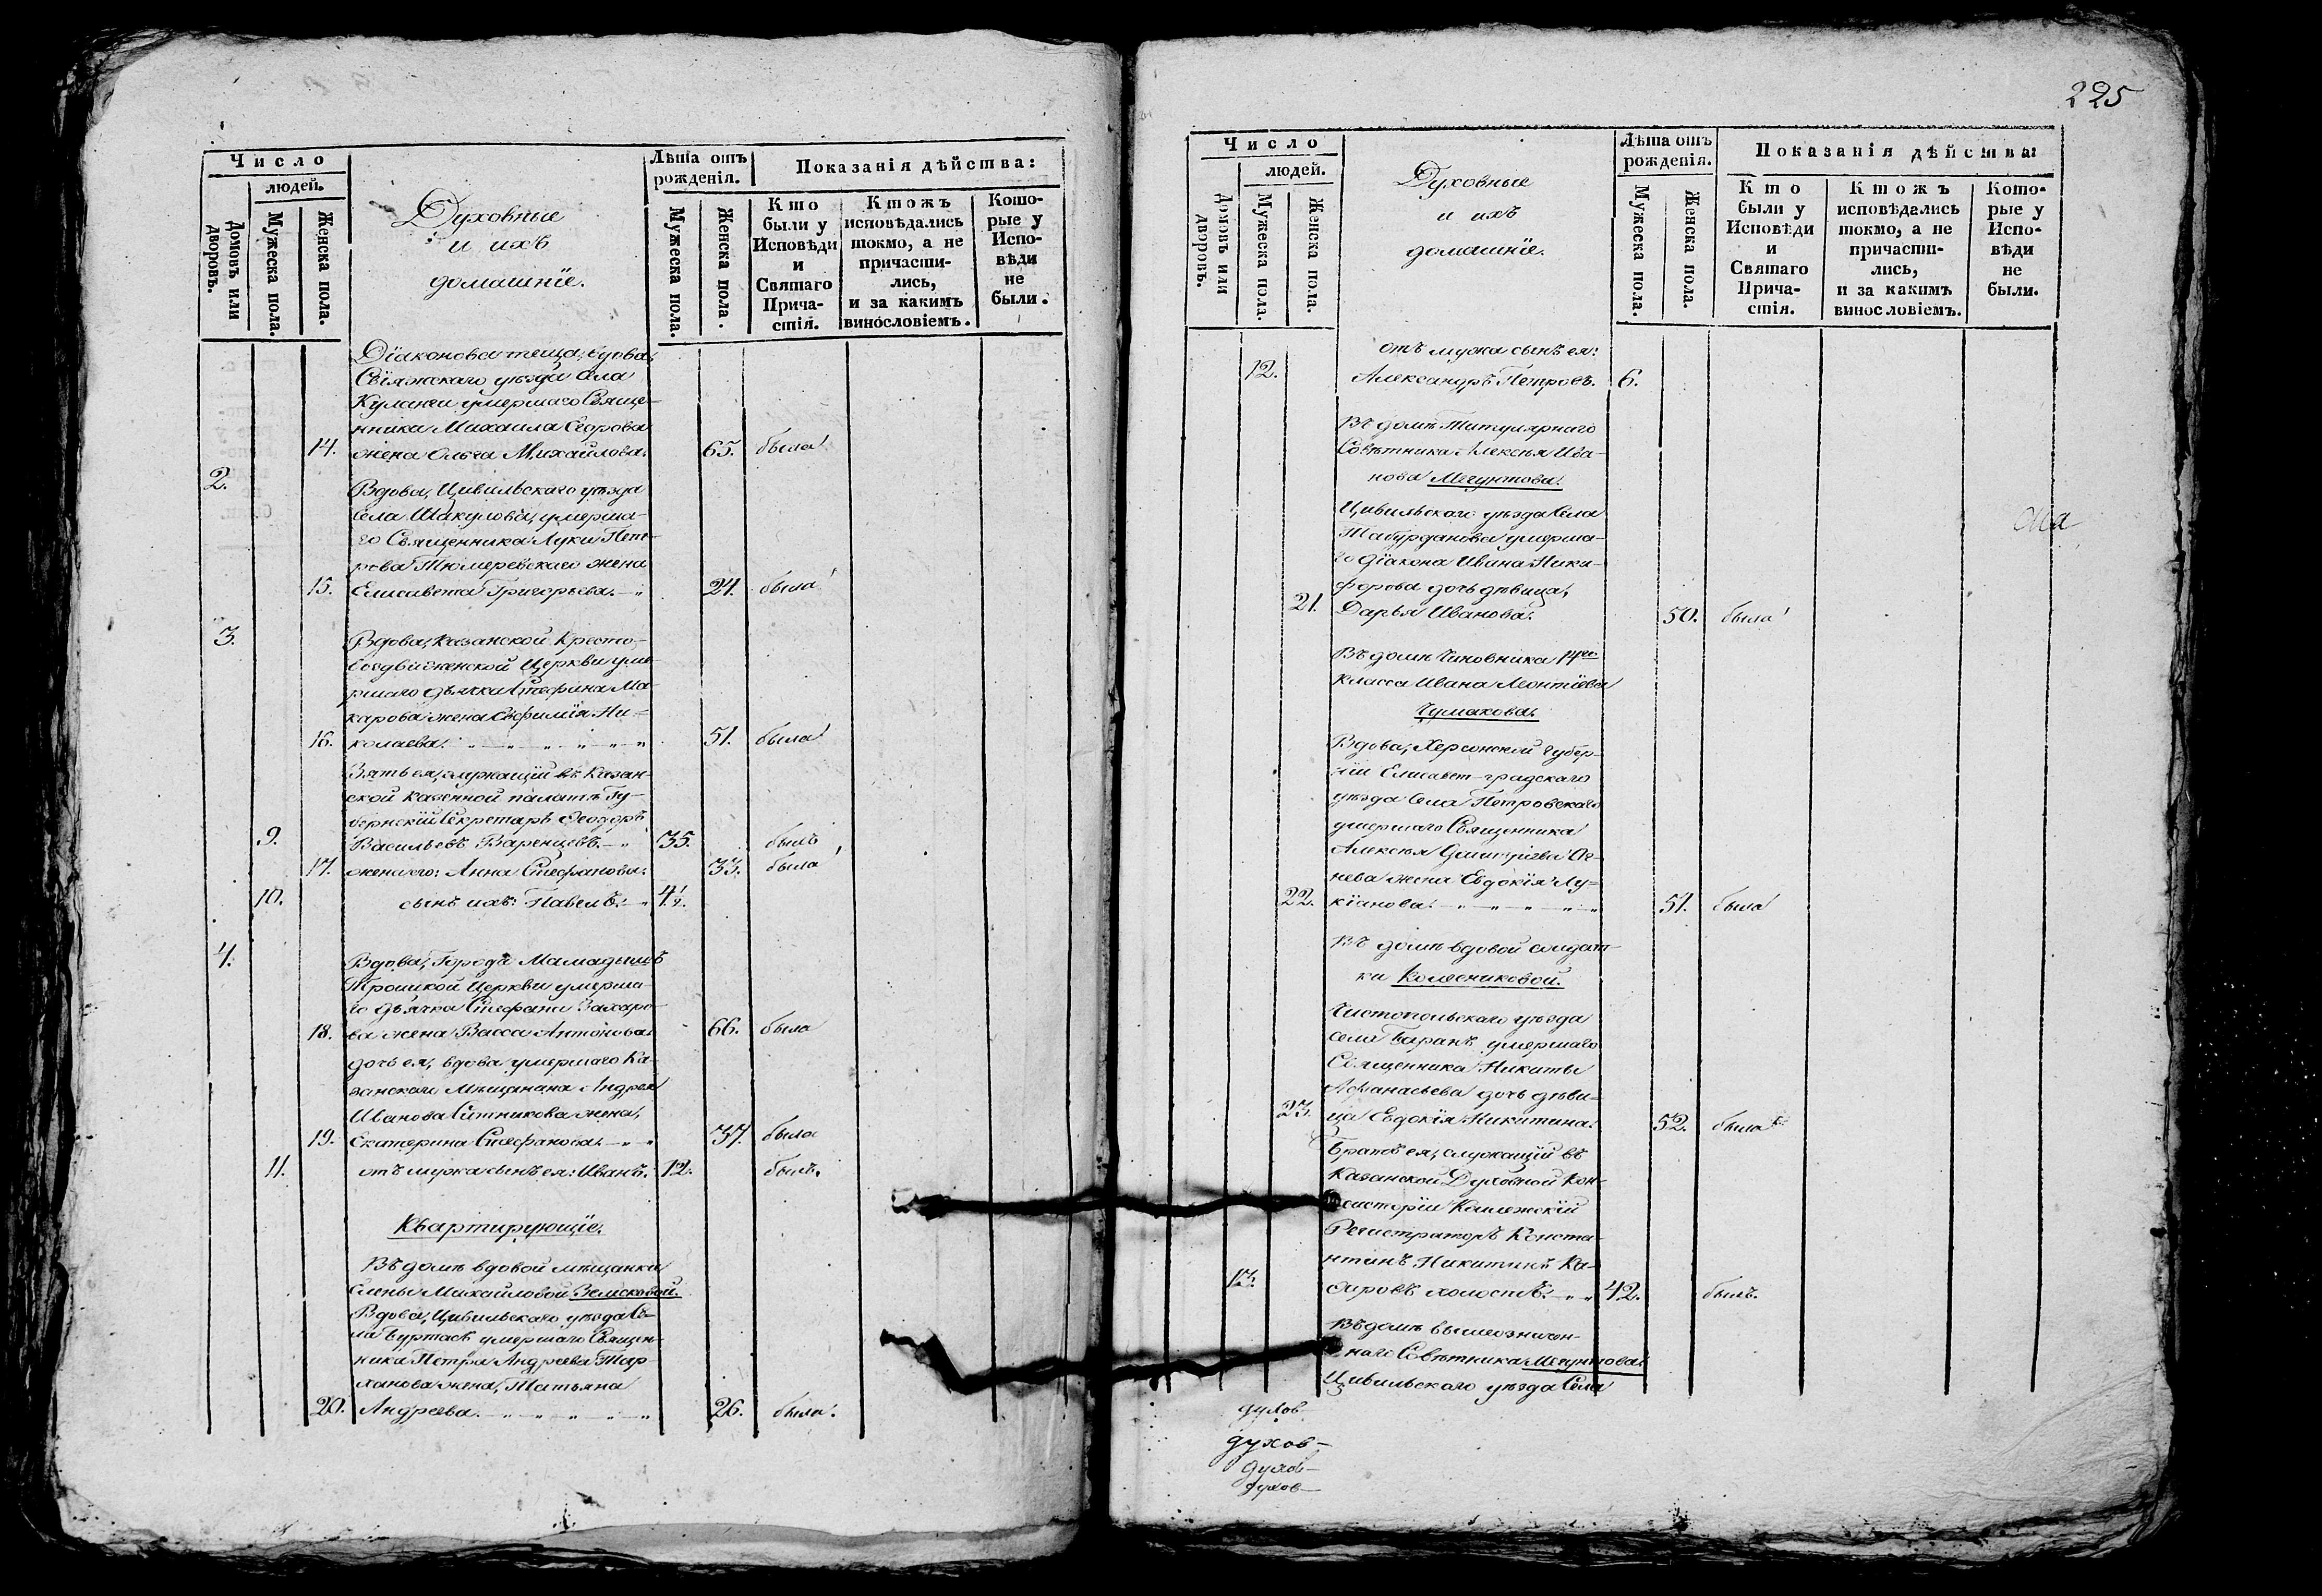 Число
людей.
Домовъ или дворовъ.
Мужеска пола.
Женска пола.
Духовные
и ихъ
домашніе.
Лѣта отъ рожденія.
Мужеска пола.
Женска пола.
Показанія дѣйства:
Кто были у Исповѣди и Святаго Прича-стія.
Ктожъ исповѣдались токмо, а не причасти-лись, и за какимъ винословіемъ.
Кото-рые у Испо-вѣди не были.
Діаконова теща, вдова,
Свіяжскаго уѣзда села
Куланги умершаго Свяще-
нника Михаила Егорова
14. жена Ольга Михайлова. 65. была
2. Вдова, Цивильскаго уѣзда
села Шакулова, умерша-
го Священника Луки Пет-
рова Тюмеревскаго жена
15. Елисавета Григорьева. 24. была
3. Вдова, Казанской Кресто-
воздвиженской Церкви уме-
ршаго дьячка Стефана Ма-
карова жена Евфимія Ни-
16. колаева. 51. была
Зять ея, служащій въ Казан-
ской казенной палатѣ Гу-
бернскій Секретарь Ѳеодоръ
9. Васильевъ Варенцевъ. 35. былъ
17. жена его: Анна Стефанова. 33. была
10. сынъ ихъ: Павелъ. 4½.
4. Вдова, Города Мамадышъ
Троицкой Церкви умерша-
го дьячка Стефана Захаро-
18. ва жена Васса Антонова. 66. была
дочь ея, вдова умершаго Ка-
занскаго мѣщанина Андрея
Иванова Ситникова жена,
19. Екатерина Стефанова. 37. была
11. отъ мужа сынъ ея: Иванъ. 12. былъ.
Квартирующіе.
Въ домѣ вдовой мѣщанки
Елены Михайловой Земсковой.
Вдова, Цивильскаго уѣзда Се-
ла Буртасъ умершаго Священ-
ника Петра Андреева Тар-
ханова жена, Татьяна
20. Андреева. 26. была.
225
Число
людей.
Домовъ или дворовъ.
Мужеска пола.
Женска пола.
Духовные
и ихъ
домашніе.
Лѣта отъ рожденія.
Мужеска пола.
Женска пола.
Показанія дѣйства:
Кто были у Исповѣди и Святаго Прича-стія.
Ктожъ исповѣдались токмо, а не причасти-лись, и за какимъ винословіемъ.
Кото-рые у Испо-вѣди не были.
отъ мужа сынъ ея:
12. Александръ Петровъ. 6.
Въ домѣ Титулярнаго
Совѣтника Алексѣя Ива-
нова Мегунтова.
Цивильскаго уѣзда Села
Табурданова умерша-
го діакона Ивана Ники-
форова дочь дѣвица,
21. Дарья Иванова. 50. была
Въ домѣ Чиновника 14го
класса Ивана Леонтіева
Чумакова.
Вдова, Херсонской губер-
ніи Елисавет-градскаго
уѣзда Села Петровскаго
умершаго Священника
Алексѣя Дмитріева Аг-
нева жена Евдокія Лу-
22. кіанова. 51. была
Въ домѣ вдовой солдат-
ки Колесниковой.
Чистопольскаго уѣзда
села Баранъ умершаго
Священника Никиты
Аѳанасьева дочь дѣви-
23. ца Евдокія Никитина. 52. была
Братъ ея, служащій въ
Казанской Духовной Кон-
систоріи Коллежскій
Регистраторъ Конста-
нтинъ Никитинъ Ка-
13. холостъ. 42. былъ.
Въ домѣ вышеозначен-
наго Совѣтника Мегунтова.
Цивильскаго уѣзда Села
духов-
духов-
духов-
духов-